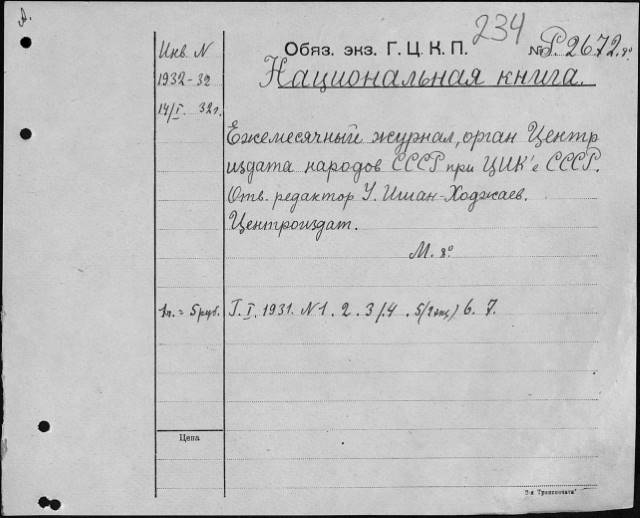 А.
234
Обяз. экз. Г. Ц. К. П. № Р. 2672. 8°
Национальная книга.
Инв. N
1932-32
14/I. 32 г.
Ежемесячный журнал, орган Центр
издата народов СССР при ЦИК'е СССР.
Отв. редактор У. Ишан-Ходжаев.
Центроиздат.
М. 8°
1 г. = 5 руб. Г. I. 1931. N 1. 2. 3/4. 5 (2 экз) 6. 7.
Цена